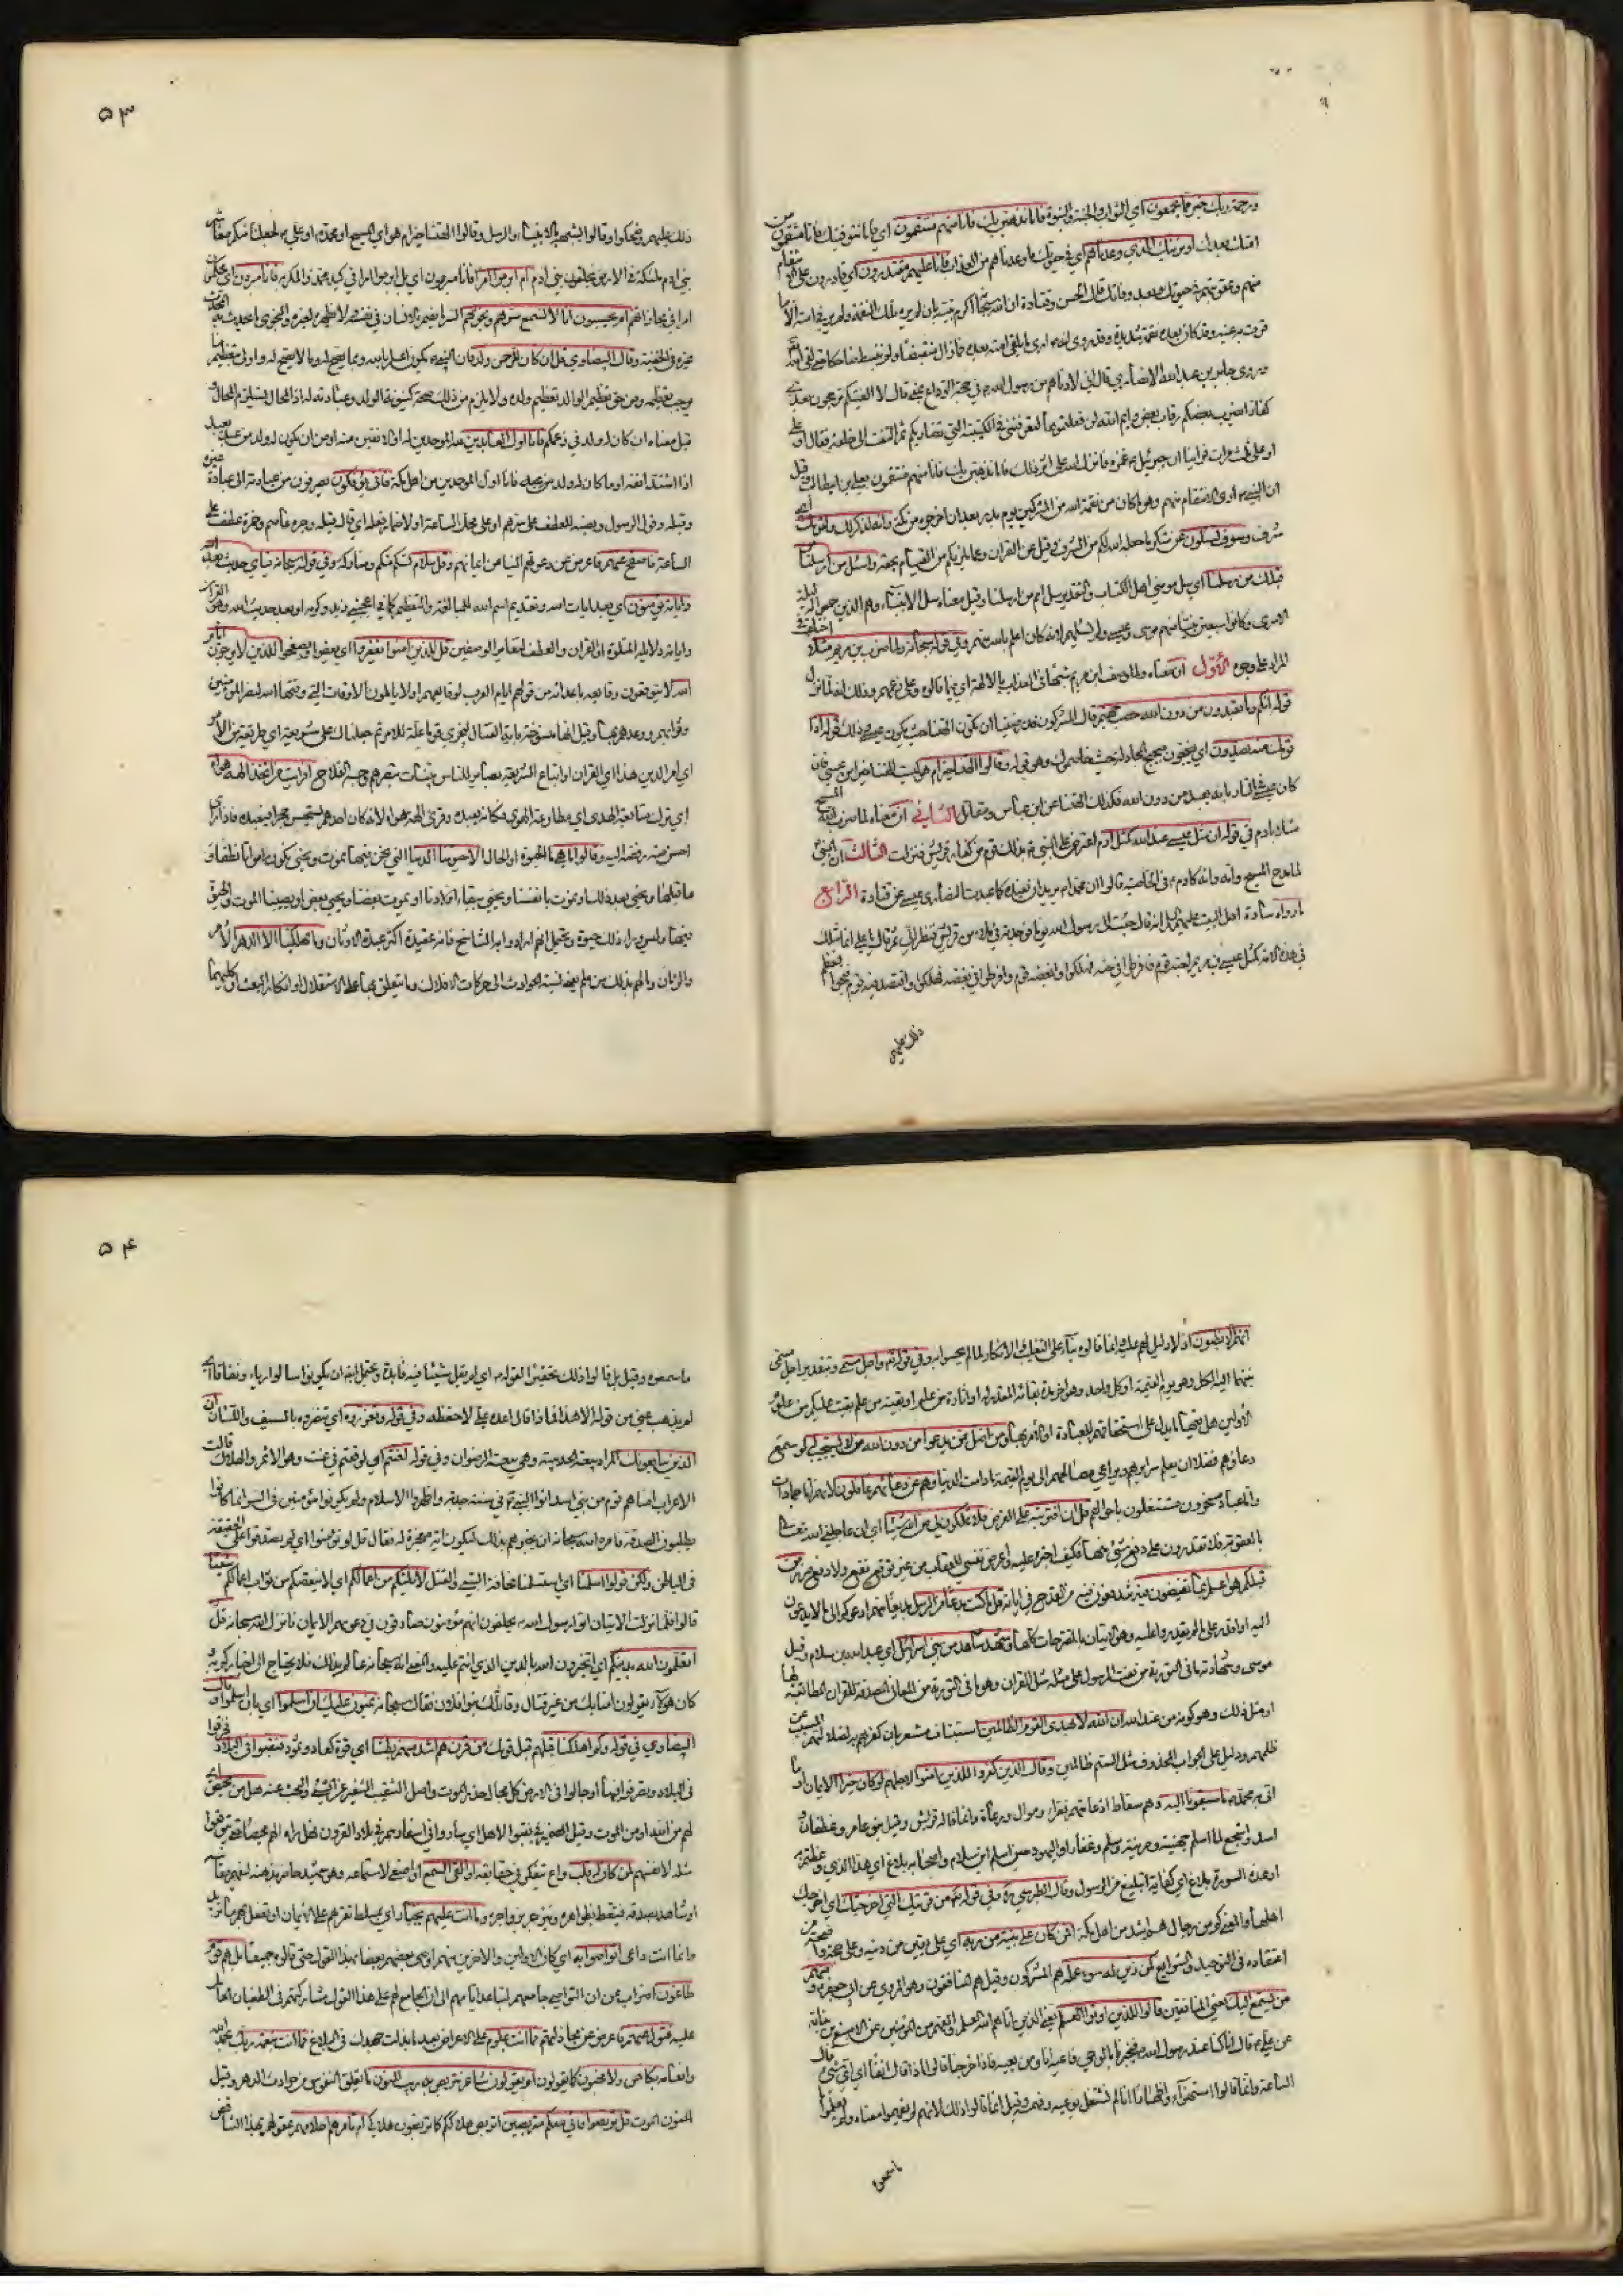 ورحمة ربك خير مما يجمعون اي الثواب والجنة والنبوة فاما نذهبن بك فانا منهم منتقمون اي فاما نتوفينك فانا منتقمون من
امتك بعدك او نرينك الذي وعدناهم اي في حيوتك ما وعدناهم من العذاب فانا عليهم مقتدرون اي قادرون على الانتقام
منهم وعقوبتهم في حيوتك وبعد وفاتك قال الحسن وقتادة ان الله سبحانه اكرم نبيه بان لم يره تلك النقمة ولم يره في امته الا ما
قرت به عينه وقد كان بعده نقمة شديدة وقد روي انه اري ما يلقى امته بعده فما زال منقبضا ولم ينبسط ضاحكا حتى لقى الله
وروى جابر بن عبد الله الانصاري قال اني لادناهم من رسول الله في حجة الوداع بمنى قال لا الفينكم ترجعون بعدي
كفارا يضرب بعضكم رقاب بعض وايم الله لئن فعلتموها لتعرفنني في الكتيبة التي تضاربكم ثم التفت الى خلفه فقال او علي
او علي ثلث مرات فراينا ان جبرئيل غمزه فانزل الله على اثر ذلك فاما نذهبن بك فانا منهم منتقمون بعلي بن ابيطالب وقيل
ان النبي اري الانتقام منهم وهو ما كان من نقمة الله من المشركين يوم بدر بعد ان اخرجوه من مكة وانه لذكر لك ولقومك اي
شرف وسوف تسئلون عن شكر ما جعله الله لكم من الشرف وقيل عن القران وعما يلزمكم من القيام بحقه واسئل من ارسلنا
قبلك من رسلنا اي سل مؤمني اهل الكتاب والتقدير سل امم من ارسلنا وقيل معناه سل الانبياء وهم الذين جمعوا له ليلة
الاسرى وكانوا سبعين نبيا منهم موسى وعيسى ولم يسئلهم لانه كان اعلم بالله منهم وفي قوله سبحانه ولما ضرب بن مريم مثلا اختلف في
المراد على وجوه الأول ان معناه ولما وصف ابن مريم شبها في العذاب بالالهة اي فيما قالوه وعلى زعمهم وذلك انه لما نزل
قوله انكم وما تعبدون من دون الله حصب جهنم قال المشركون قد رضينا ان تكون الهتنا حيث يكون عيسى وذلك قوله اذا
قومك منه يصدون اي يضجون ضجيج المجادلة حيث خاصموك وهو قوله وقالوا الهتنا خير ام هو اي ليست الهتنا خيرا من عيسى فان
كان عيسى في النار بانه يعبد من دون الله فكذلك الهتنا عن ابن عباس ومقاتل الثاني ان معناه لما ضرب الله المسيح
مثلا بادم في قوله ان مثل عيسى عند الله كمثل ادم اعترض على النبي بذلك قوم من كفار قريش فنزلت الثالث ان النبي
لما مدح المسيح وامه وانه كادم في الخاصية قالوا ان محمدا يريد ان نعبده كما عبدت النصارى عيسى عن قتادة الرابع
ما رواه سادة اهل البيت عن علي انه قال جئت الى رسول الله يوما فوجدته في ملاء من قريش فنظر الي ثم قال يا علي انما مثلك
في هذه الامة كمثل عيسى بن مريم احبه قوم فافرطوا في حبه فهلكوا وابغضه قوم وافرطوا في بغضه فهلكوا واقتصد فيه قوم فنجوا فعظم
ذلك عليهم
۵۳
ذلك عليهم وضحكوا وقالوا يشبهه بالانبياء والرسل وقالوا الهتنا خير ام هو اي المسيح او محمد او علي لجعلنا منكم معاشر
بني ادم ملئكة في الارض يخلفون بني ادم ام ابرموا امرا فانا مبرمون اي بل ابرموا امرا في كيد محمد والمكر به فانا مبرمون اي محكمون
امرا في مجازاتهم ام يحسبون انا لا نسمع سرهم ونجويهم السر ما يضمره الانسان في نفسه ولا يظهره لغيره والنجوى ما يحدث به المحدث
غيره في الخفية وقال البيضاوي قل ان كان للرحمن ولد فان النبي يكون اعلم بالله وبما يصح له وما لا يصح له واولى بتعظيم ما
يوجب تعظيمه ومن حق تعظيم الوالد تعظيم ولده ولا يلزم من ذلك صحة كينونة الولد وعبادته له اذ المحال يستلزم المحال
قيل معناه ان كان له ولد في زعمكم فانا اول العابدين لله الموحدين له او الانفين منه او من ان يكون له ولد من عبد يعبد
اذا اشتد انفه او ما كان له ولد فانا اول الموحدين من اهل مكة فانى يؤفكون يصرفون من عبادته الى عبادة غيره
وقيله وقول الرسول ونصبه للعطف على سرهم او على محل الساعة او لاضمار فعله اي قال قيله وجره عاصم وحمزة عطف على
الساعة فاصفح عنهم فاعرض عن دعوتهم آيسا من ايمانهم وقل سلام تسلم منكم ومتاركة وفي قوله سبحانه فباي حديث بعد الله
واياته يؤمنون اي بعد ايات الله وتقديم اسم الله للمبالغة والتعظيم كما في اعجبني زيد وكرمه او بعد حديث الله وهو القران
واياته دلائله المتلوة او القران والعطف لتغاير الوصفين قل للذين امنوا يغفروا اي يعفوا ويصفحوا للذين لا يرجون ايام
الله لا يتوقعون وقايعه باعدائه من قولهم ايام العرب لوقايعهم او لا ياملون الاوقات التي وقتها الله لنصر المؤمنين
وثوابهم ووعدهم بها وقيل انها منسوخة باية القتال ليجزي قوما علة للامر ثم جعلناك على شريعة اي طريقة من الامر
اي امر الدين هذا اي القران او اتباع الشريعة بصائر للناس بينات تبصرهم وجه الفلاح افرايت من اتخذ الهه هواه
اي ترك متابعة الهدى الى مطاوعة الهوى فكانه يعبده وقرئ الهة هواه لانه كان احدهم يستحسن حجرا فيعبده فاذا راى
احسن منه رفضه اليه وقالوا ما هي ما الحيوة او الحال الا حيوتنا الدنيا التي نحن فيها نموت ونحيى نكون امواتا نطفا وما
ما قبلها ونحيى بعد ذلك او نموت بانفسنا ونحيى ببقاء اولادنا او يموت بعضنا ويحيى بعض او يصيبنا الموت والحيوة
فيها وليس وراء ذلك حيوة ويحتمل انهم ارادوا به التناسخ فانه عقيدة اكثر عبدة الاوثان وما يهلكنا الا الدهر الا مر
والزمان وما لهم بذلك من علم يعني نسبة الحوادث الى حركات الافلاك وما يتعلق بها على الاستقلال او انكار البعث او كليهما
انهم الا يظنون اذ لا دليل لهم عليه وانما قالوه بناء على التقليد والانكار لما لم يحسوا به وفي قوله واجل مسمى وبتقدير اجل مسمى
ينتهى اليه الكل وهو يوم القيمة او كل واحد وهو اخر مدة بقائه المقدر له او اثارة من علم او بقية من علم بقيت عليكم من علوم
الاولين هل فيها ما يدل على استحقاقهم للعبادة او الامر بها ومن اضل ممن يدعوا من دون الله من لا يستجيب له لو سمع
دعاؤهم فضلا ان يعلم سرايرهم ويراعي مصالحهم الى يوم القيمة ما دامت الدنيا وهم عن دعائهم غافلون لانهم اما جمادات
واما عباد مسخرون مشتغلون باحوالهم قل ان افتريته على الفرض فلا تملكون لي من الله شيئا اي ان عاجلني الله
بالعقوبة فلا تقدرون على دفع شيئ منها فكيف اجترء عليه واعرض نفسي للعقاب من غير توقع نفع ولا دفع ضر من
قبلكم هو اعلم بما تفيضون فيه تندفعون فيه من القدح في اياته قل ما كنت بدعا من الرسل بديعا منهم ادعوكم الى ما لا يدعون
اليه او اقدر على ما لم يقدروا عليه وهو الاتيان بالمقترحات كلها وشهد شاهد من بني اسرائيل اي عبد الله بن سلام وقيل
موسى وشهادته ما في التورية من نعت الرسول على مثله مثل القران وهو ما في التورية من المعاني المصدقة للقران المطابقة لها
او مثل ذلك وهو كونه من عند الله ان الله لا يهدي القوم الظالمين استيناف مشعر بان كفرهم به لضلالهم المسبب عن
ظلمهم ودليل على الجواب المحذوف مثل الستم ظالمين وقال الذين كفروا للذين امنوا لاجلهم لو كان خيرا الايمان او ما
اتى به محمد ما سبقونا اليه وهم سقاط اذ عامتهم فقراء وموال ورعاة وانما قاله قريش وقيل بنو عامر وغطفان و
اسد واشجع لما اسلم جهينة ومزينة واسلم وغفار او اليهود حين اسلم ابن سلام واصحابه بلاغ اي هذا الذي وعظتم به
او هذه السورة بلاغ اي كفاية او تبليغ من الرسول وقال الطبرسي وفي قوله من قريتك التي اخرجتك اي اخرجك
اهلها والمعنى كم من رجال هم اشد من اهل مكة افمن كان على بينة من ربه اي على يقين من دينه وعلى حجة واضحة من
اعتقاده في التوحيد والشرايع كمن زين له سوء عمله هم المشركون وقيل هم المنافقون وهو المروي عن ابي جعفر ومنهم
من يستمع اليك يعني المنافقين قالوا للذين اوتوا العلم يعني الذين اتاهم الله العلم والفهم من المؤمنين عن الاصبغ بن نباتة
عن علي قال انا كنا عند رسول الله فيخبرنا بالوحي فاعيه انا ومن يعيه فاذا خرجنا قالوا ماذا قال انفا اي اي شيئ قال
الساعة وانما قالوا استهزاء واظهارا انا لم نشتغل بوعيه وفهمه وقيل انما قالوا ذلك لانهم لم يفهموا معناه ولم يعلموا
ما سمعوا
۵۴
ما سمعوه وقيل بل قالوا ذلك تحقيرا لقوله اي لم يقل شيئا فيه فايدة ويحتمل ايضا ان يكونوا سالوا رياء ونفاقا اي
لم يذهب عني من قوله الا هذا فماذا قال اعده علي لاحفظه وفي قوله وتعزروه اي تنصروه بالسيف واللسان ان
الذين يبايعونك المراد بيعة الحديبية وهي بيعة الرضوان وفي قوله لعنتم اي لوقعتم في عنت وهو الاثم والهلاك قالت
الاعراب امنا هم قوم من بني اسد اتوا النبي في سنة جدبة واظهروا الاسلام ولم يكونوا مؤمنين في السر انما كانوا
يطلبون الصدقة فامره الله سبحانه ان يخبرهم بذلك ليكون اية معجزة له فقال قل لم تؤمنوا اي لم تصدقوا على الحقيقة
في الباطن ولكن قولوا اسلمنا اي استسلمنا مخافة السبي والقتل لا يلتكم من اعمالكم اي لا ينقصكم من ثواب اعمالكم شيئا
قالوا فلما نزلت الايتان اتوا رسول الله يحلفون انهم مؤمنون صادقون في دعويهم الايمان فانزل الله سبحانه قل
اتعلمون الله بدينكم اي اتخبرون الله بالدين الذي انتم عليه والمعنى انه سبحانه عالم بذلك فلا يحتاج الى اخباركم به و
كان هؤلاء يقولون امنا بك من غير قتال وقاتلك بنو فلان فقال سبحانه يمنون عليك ان اسلموا اي بان اسلموا وقال
البيضاوي في قوله وكم اهلكنا قبلهم قبل قومك من قرن هم اشد منهم بطشا اي قوة كعاد وثمود فنقبوا في البلاد فخرقوا
في البلاد وتصرفوا فيها او جالوا في الارض كل مجال حذر الموت واصل التنقيب التنقير عن الشئ والبحث عنه هل من محيص اي
لهم من الله او من الموت وقيل الضمير في نقبوا لاهل مكة اي ساروا في اسفارهم في بلاد القرون فهل راوا لهم محيصا حتى يتوقعوا
مثله لانفسهم لمن كان له قلب واع يتفكر في حقايقه او القى السمع او اصغى لاستماعه وهو شهيد حاضر بذهنه ليفهم معانيه
او شاهد بصدقه فيتعظ بظواهره وينزجر بزواجره وما انت عليهم بجبار اي بمسلط تقسرهم على الايمان او تفعل بهم ما تريد
وانما انت داعي اتواصوا به اي كان الاولين والاخرين منهم اوصى بعضهم بعضا بهذا القول حتى قالوه جميعا بل هم قوم
طاغون اضراب عن ان التواصي جامعهم لتباعد ايامهم الى ان الجامع لهم على هذا القول مشاركتهم في الطغيان الحامل
عليه فتول عنهم فاعرض عن مجادلتهم فما انت بملوم على الاعراض بعد ما بذلت جهدك في البلاغ فما انت بنعمة ربك بحمد الله
وانعامه بكاهن ولا مجنون كما يقولون ام يقولون شاعر نتربص به ريب المنون ما يقلق النفوس من حوادث الدهر وقيل
المنون الموت قل تربصوا فاني معكم من المتربصين اتربص هلاككم كما تتربصون هلاكي ام تامرهم احلامهم عقولهم بهذا التناقض